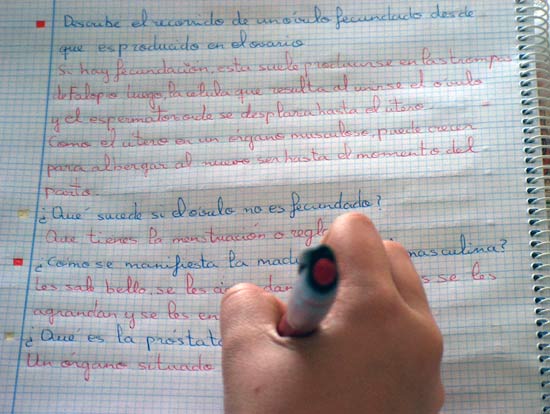 Describe el recorrido de un óvulo fecundado desde
que es producido en el ovario
Si hay fecundación, esta suele producirse en las trompas
de Falopio luego, la célula que resulta al unirse el óvulo
y el espermatozoide se desplara hasta el útero.
Como el útero en un órgano musculoso, puede crecer
para albergar al nuevo ser hasta el momento del
parto.
¿Qué sucede si el óvulo no es fecundado?
Que tienes la menstruación o regla
¿Como se manifiesta la masculina?
Les sale bello, se les se les
agrandan y se les en
¿Qué es la próstata
Un órgano situado